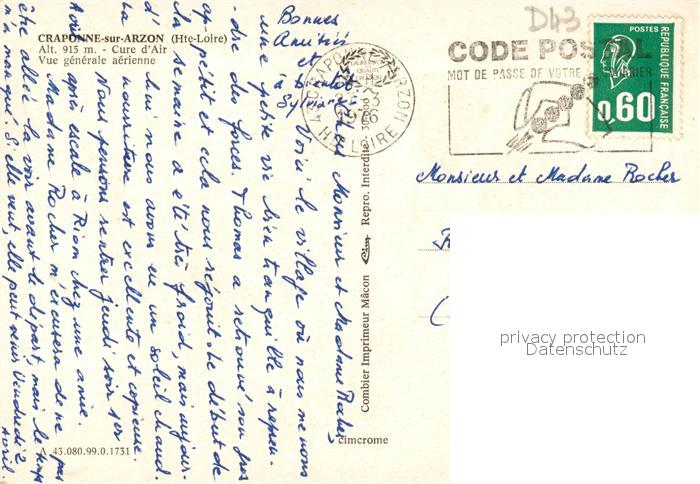 CRAPONNE-sur-ARZON (Hte-Loire)
Alt. 915 m. - Cure d'Air
Vue générale aérienne
Bonnes
Amitiés
et
à bientôt
Sylviane
D43
CODE POSTAL
MOT DE PASSE DE VOTRE COURRIER
POSTES
0,60
REPUBLIQUE FRANÇAISE
HTE LOIRE
Monsieur et Madame Rocher
Chers Monsieur et Madame Rocher,
Voici le village où nous menons
une petite vie bien tranquille à repren-
-dre des forces. Thomas a retrouvé son gros
appétit et cela nous réjouit. Le début de
la semaine a été très froid, mais aujour-
d'hui nous avons eu un soleil chaud.
La nourriture est excellente et copieuse.
Nous pensons rentrer jeudi soir 1er
Avril après escale à Riom chez une amie.
Madame Rocher m'excusera de ne pas
être allée la voir avant le départ, mais le temps
m'a manqué. Si elle veut, elle peut venir Vendredi 2
Avril.
Combier Imprimeur Mâcon Cim Repro. Interdite
cimcrome
A 43.080.99.0.1731
privacy protection
Datenschutz